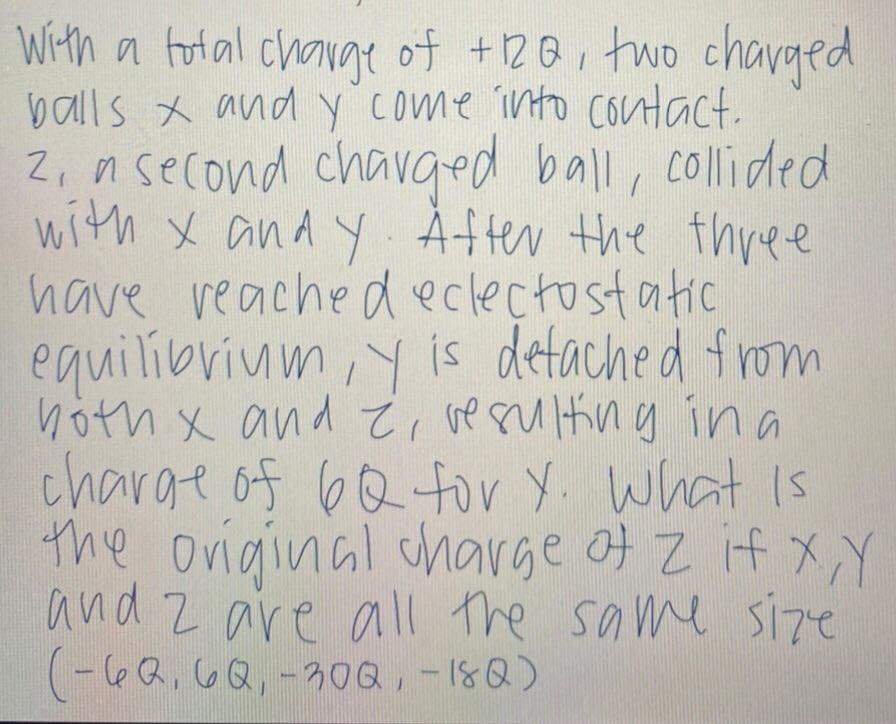 With a total charge of +12Q, two charged
balls x and y come into contact.
Z, a second charged ball, collided
with x and y. After the three
have reached eclectostatic
equilibrium, y is detached from
both x and z, resulting in a
charge of 6Q for Y. What is
the original charge of Z if X,Y
and Z are all the same size
(-6Q, 6Q, -30Q, -18Q)